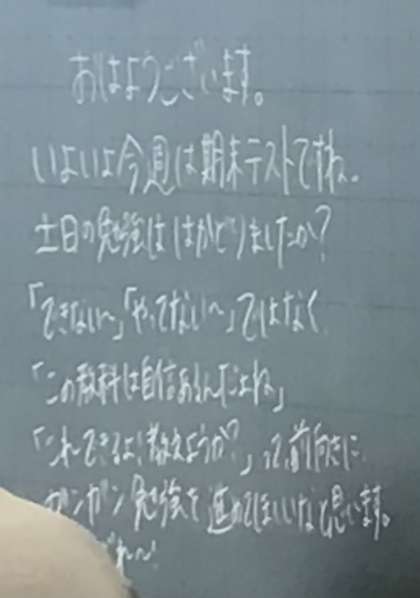 おはようございます。
いよいよ今週は期末テストですね。
土日の勉強ははかどりましたか？
「できない〜」「やってない〜」ではなく
「この教科は自信あるんだよね」
「これできるよ！教えようか？」って、前向きに
ガンガン勉強を進めてほしいなと思います。